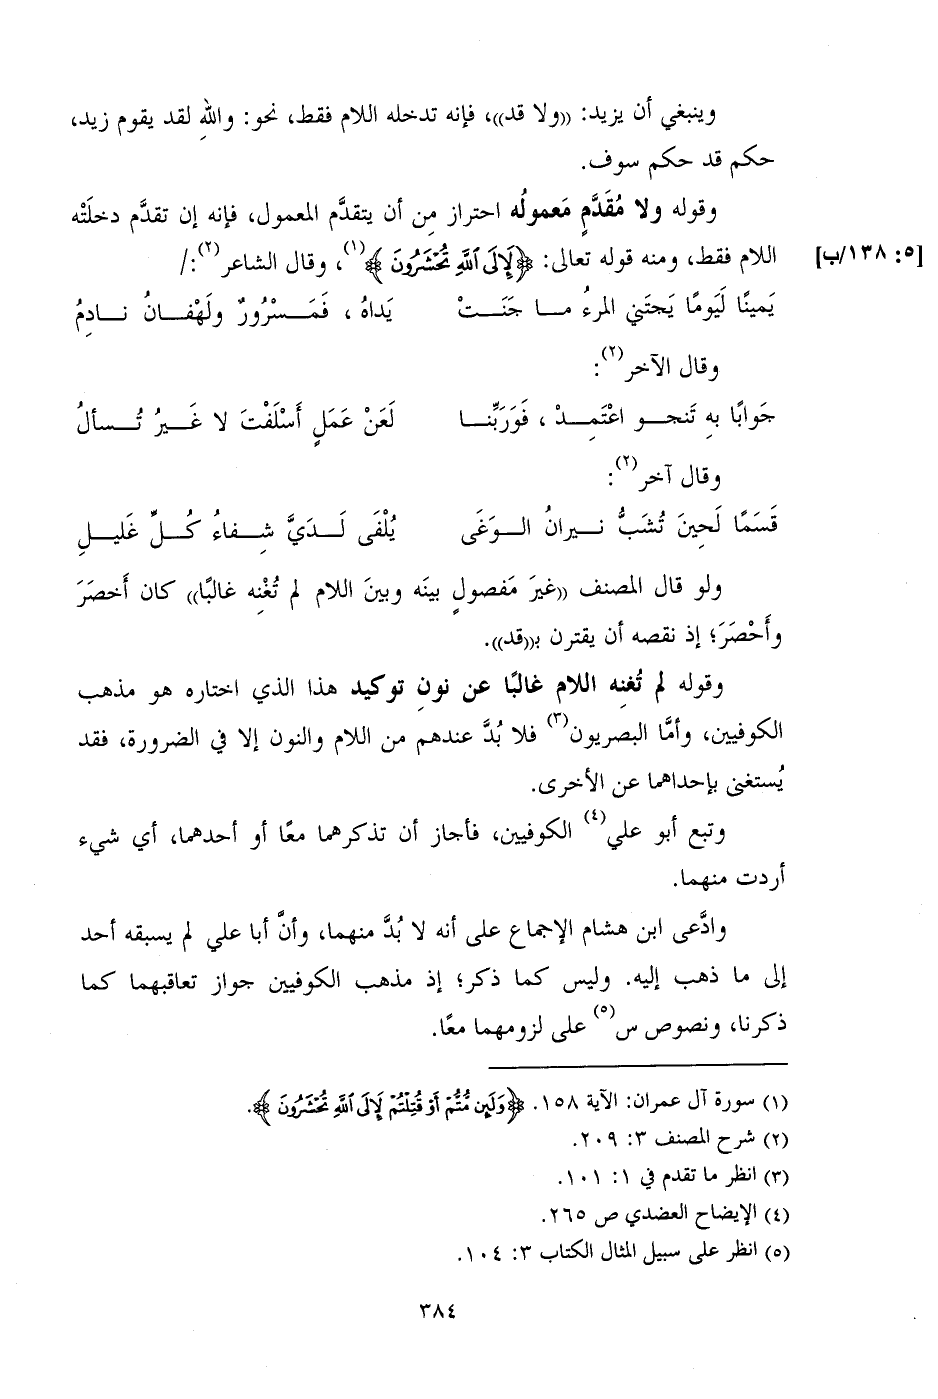 وينبغي أن يزيد: ((ولا قد))، فإنه تدخله اللام فقط، نحو: واللهِ لقد يقوم زيد،
حكم قد حكم سوف.
وقوله ولا مُقَدَّمٍ مَعمولُه احتراز مِن أن يتقدَّم المعمول، فإنه إن تقدَّم دخلَتْه
[٥: ١٣٨/ب] اللام فقط، ومنه قوله تعالى: ﴿لَإِلَى ٱللَّهِ تُحْشَرُونَ﴾(١)، وقال الشاعر(٢):/
يَمينًا لَيَومًا يَجتَني المرءُ مـا جَنَـتْ يَداهُ ، فَمَـسْرُورٌ ولَهْفـانُ نـادِمُ
وقال الآخر(٢):
جَوابًا بهِ تَنجـو اعْتَمِـدْ ، فَوَرَبِّنـا لَعَنْ عَمَلٍ أَسْلَفْتَ لا غَـيرُ تُـسألُ
وقال آخر(٢):
قَسَمًا لَحِينَ تُشَبُّ نـيرانُ الـوَغَى يُلْفَى لَـدَيَّ شِـفاءُ كُـلِّ غَليـلِ
ولو قال المصنف ((غيرَ مَفصولٍ بينَه وبينَ اللام لم تُغْنِه غالبًا)) كان أَخصَرَ
وأَحْصَرَ؛ إذ نقصه أن يقترن بـ((قد)).
وقوله لم تُغنِه اللام غالبًا عن نونِ توكيد هذا الذي اختاره هو مذهب
الكوفيين، وأمَّا البصريون(٣) فلا بُدَّ عندهم من اللام والنون إلا في الضرورة، فقد
يُستغنى بإحداهما عن الأخرى.
وتبع أبو علي(٤) الكوفيين، فأجاز أن تذكرهما معًا أو أحدهما، أي شيء
أردت منهما.
وادَّعى ابن هشام الإجماع على أنه لا بُدَّ منهما، وأنَّ أبا علي لم يسبقه أحد
إلى ما ذهب إليه. وليس كما ذكر؛ إذ مذهب الكوفيين جواز تعاقبهما كما
ذكرنا، ونصوص س(٥) على لزومهما معًا.
(١) سورة آل عمران: الآية ١٥٨. ﴿وَلَئِن مُّتُّمْ أَوْ قُتِلْتُمْ لَإِلَى ٱللَّهِ تُحْشَرُونَ﴾.
(٢) شرح المصنف ٣: ٢٠٩.
(٣) انظر ما تقدم في ١: ١٠١.
(٤) الإيضاح العضدي ص ٢٦٥.
(٥) انظر على سبيل المثال الكتاب ٣: ١٠٤.
٣٨٤